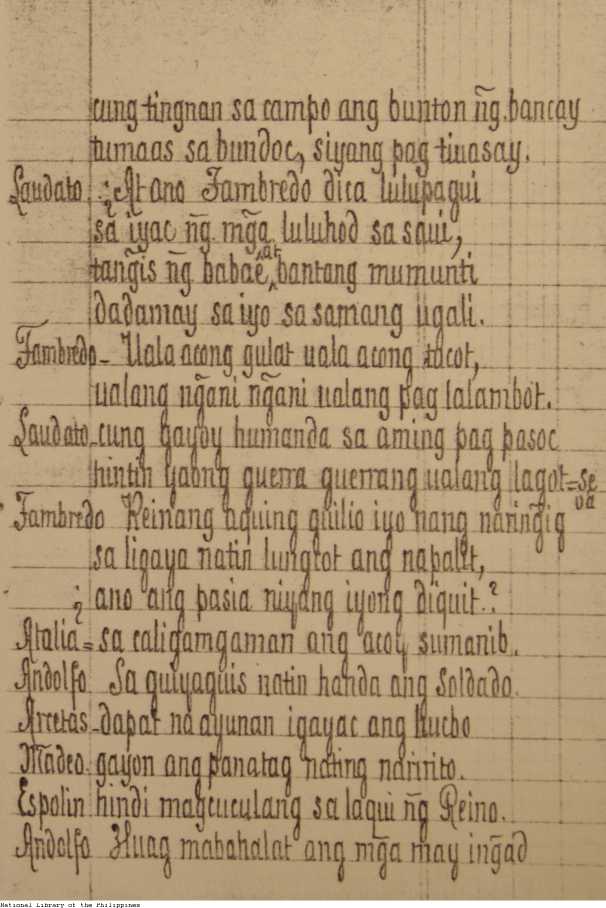 cung tingnan sa campo ang bunton ñg. bancay
tumaas sa bundoc, siyang pag tiuasay.
Laudato. ¿At ano Fambredo dica lulupagui
sa iyac ñg. mg̃a luluhod sa saui,
tang̃is ñg babaê, at bantang mumunti
dadamay sa iyo sa samang ugali.
Fambredo - Uala acong gulat uala acong tacot,
ualang ng̃ani ng̃ani ualang pag lalambot.
Laudato - cung gayoy humanda sa aming pag pasoc
hintin yaong guerra guerrang ualang lagot = se
va
Fambredo Reinang aquing guilio iyo nang naring̃ig
sa ligaya natin lungcot ang napalit,
¿ ano ang pasia niyang iyong diquit.?
Atalia = sa caligamgaman ang acoy sumanib.
Andolfo Sa guiyaguis natin handa ang Soldado.
Arcetas - dapat na ayunan igayac ang Hucbo
Madeo. gayon ang panatag nating naririto.
Espolin hindi magcuculang sa laqui ñg Reino.
Andolfo Huag mabahalat ang mg̃a may ing̃ad
National Library of the Philippines